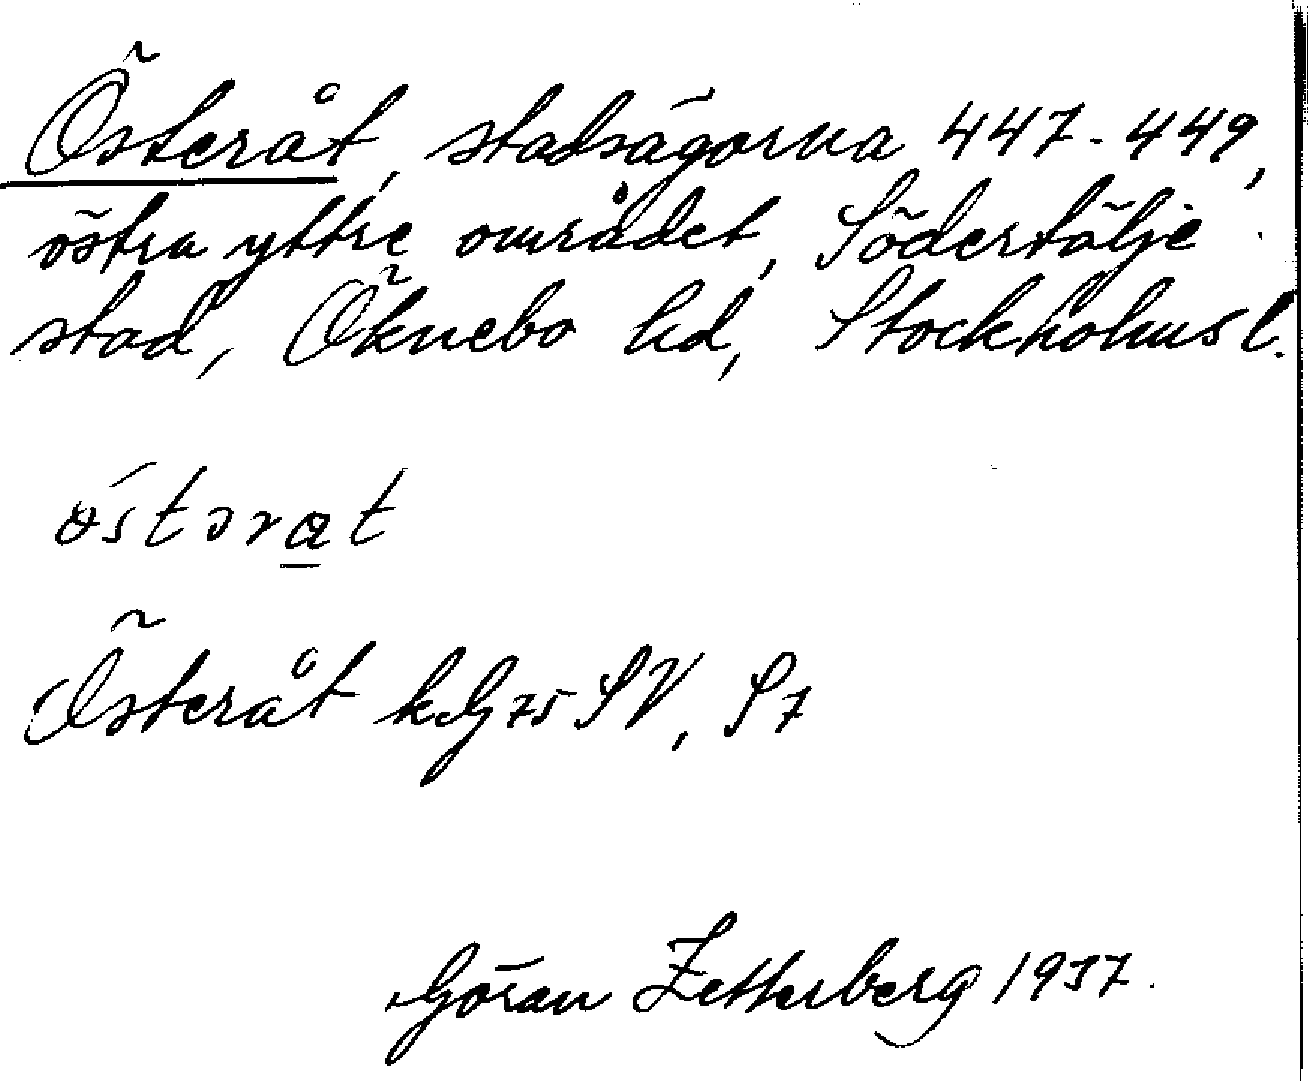 Österåt, stadsägorna 447-449,
östra yttre området, Södertälje
stad, Öknebo hd, Stockholms l.
östərat
Österåt k. G 75 SV, S7
Göran Zetterberg 1937.